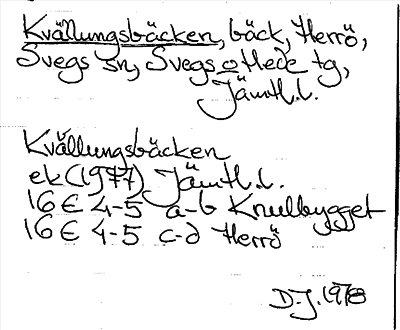 Kvällungsbäcken, bäck, Herrö,
Svegs sn, Svegs o Hede tg,
Jämtl.l.
Kvällungsbäcken
ek (1977) Jämtl.l.
16 E 4-5 a-b Knulbygget
16 E 4-5 c-d Herrö
D-J. 1978